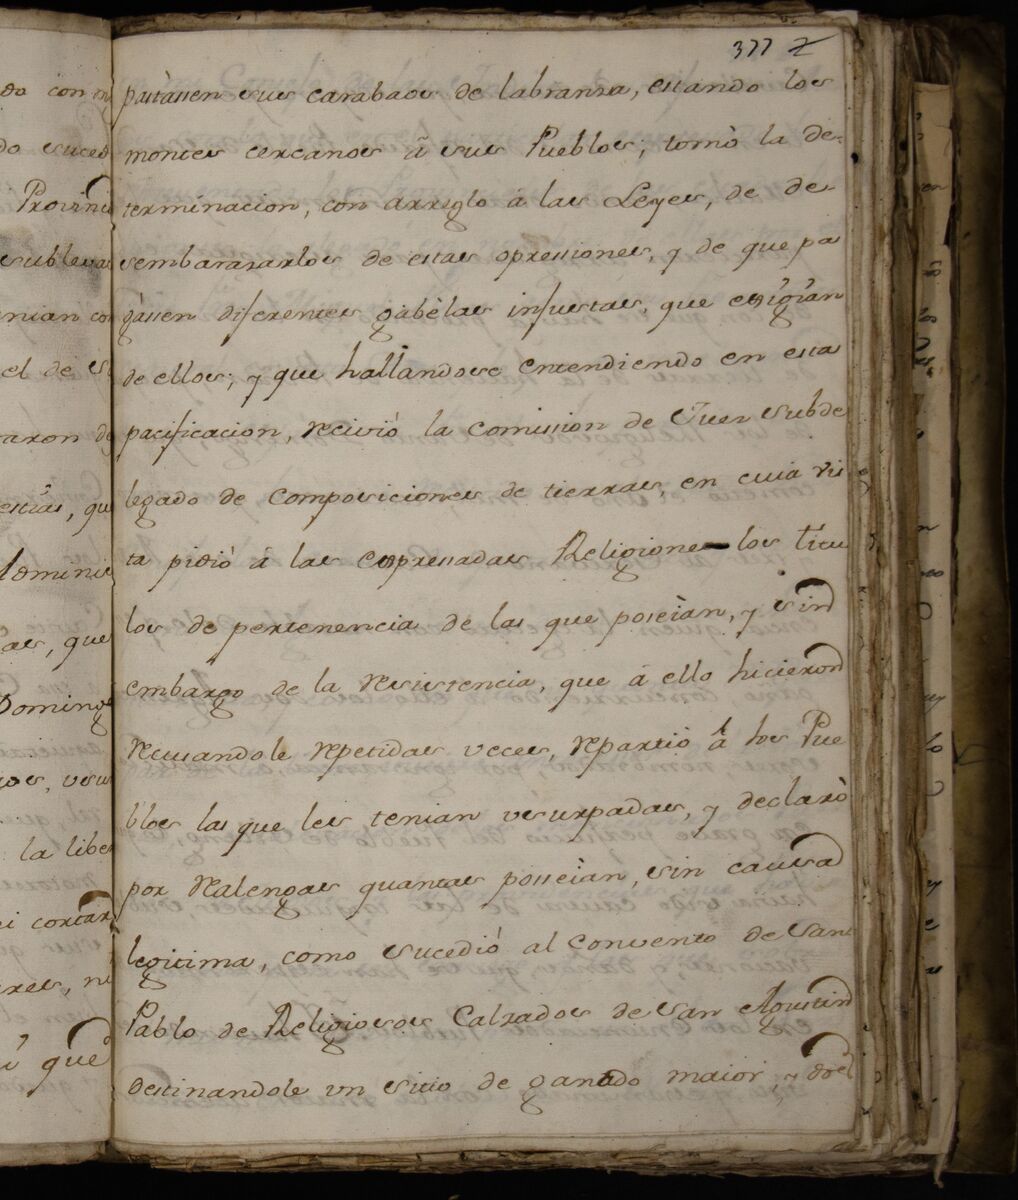 377
pastassen sus carabaos de labranza, estando los
montes cercanos â sus Pueblos; tomò la de=
terminacion, con arreglo à las Leyes, de de
sembarazarlos de estas opresiones, y de que pa
gâssen diferentes gabèlas injustas, que exigîan
de ellos; y que hallandose entendiendo en esta
pacificacion, recivió la Comission de Juez Subde
legado de Composiciones de tierras, en cuia vis
ta pidiò á las expresadas Religiones los titu
los de pertenencia de las que poseìan, y sin
embargo de la resistencia, que á ello hicieron
recusandole repetidas veces, repartió á los Pue
blos las que les tenian usurpadas, y declarò
por realengas quantas posseìan, sin causa
legitima, como sucediò al Convento de San
Pablo de Religiosos Calzados de San Agustin
destinandole un sitio de ganado maior, y dos
do con
do suced
Provinci
subleva
nian con
el de S
raron de
que
que
Doming
la libe
ni cortar
que